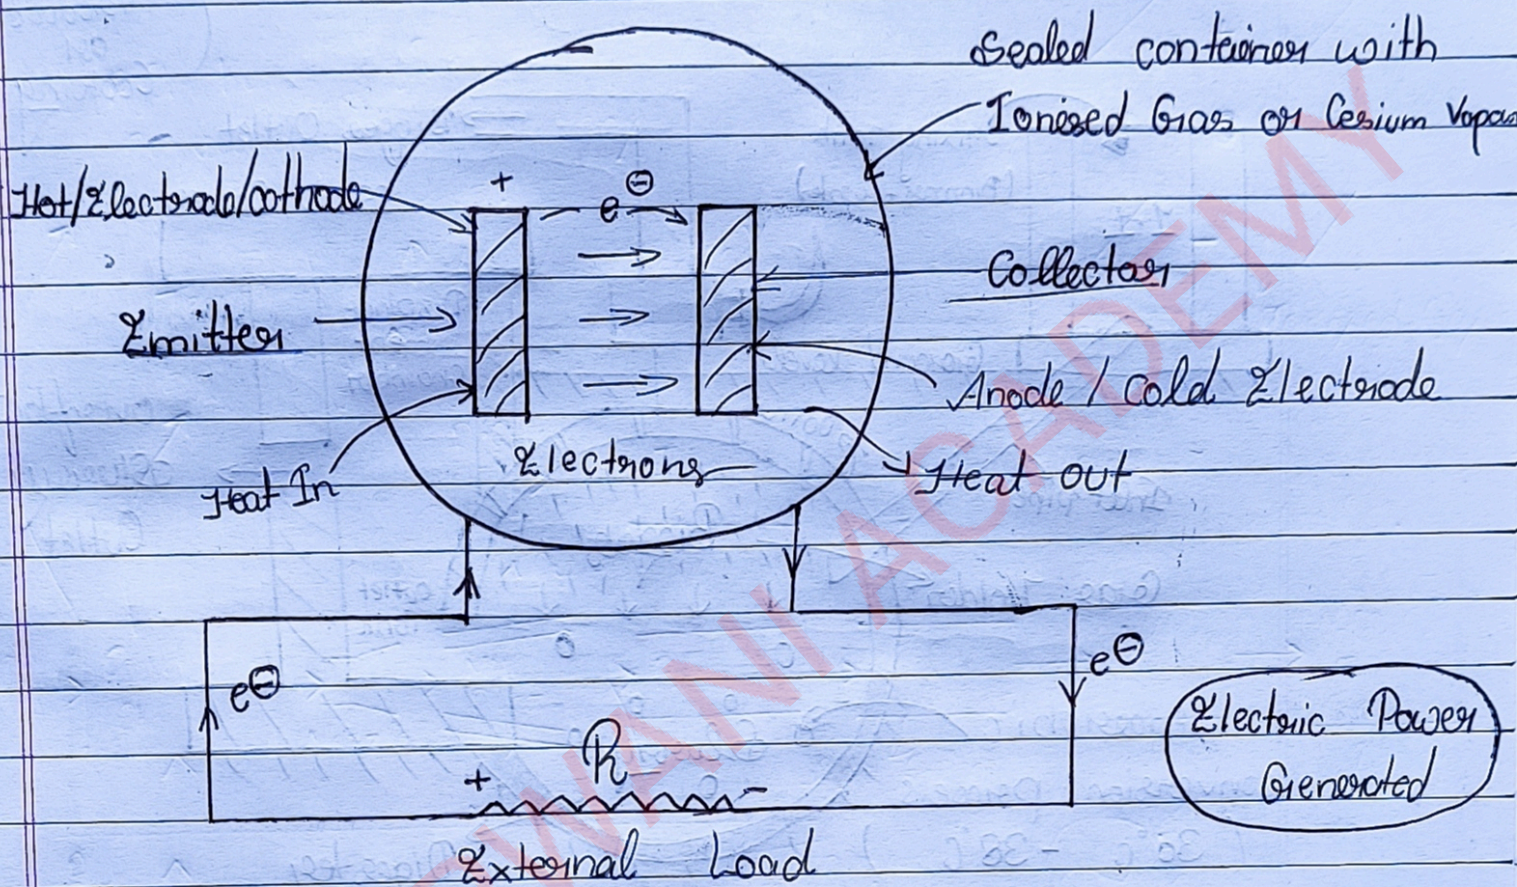 Sealed container with
Ionised Gas or Cesium Vapou
Hot/Electrode/cathode
+
e⊖
Collector
Emitter
Anode / Cold Electrode
Electrons
Heat In
Heat out
e⊖
e⊖
Electric Power
Generated
R
+
-
External Load
WANI ACADEMY